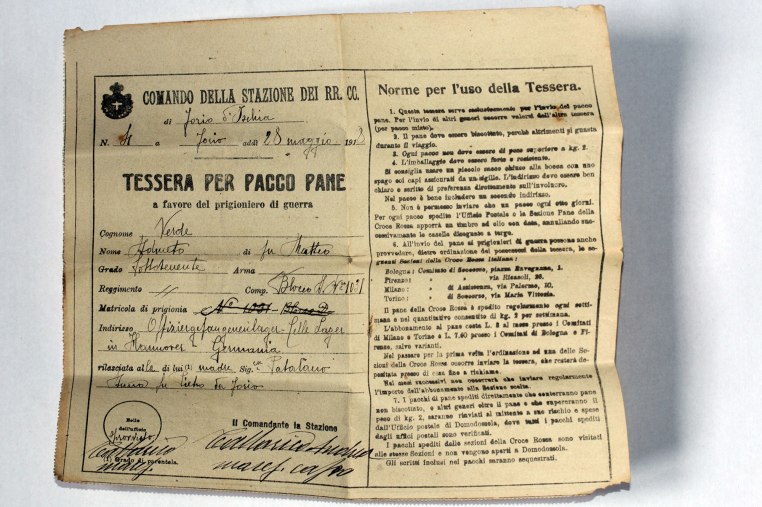 COMANDO DELLA STAZIONE DEI RR. CC.
di Forio d'Ischia
N. 4 a Forio addì 28 maggio 1918
TESSERA PER PACCO PANE
a favore del prigioniero di guerra
Cognome Verde
Nome di fu Matteo
Grado Sottotenente Arma
Reggimento " Comp.
Matricola di prigionia
Indirizzo Offiziergefangenenlager - Celle Lager
in Hannover Germania
rilasciata alla di lui (1) madre Sig.
Anna fu Pietro da Forio
Bollo
dell'ufficio
Il Comandante la Stazione
(1) Grado di parentela.
Norme per l'uso della Tessera.
1. Questa tessera serve esclusivamente per l'invio del pacco
pane. Per l'invio di altri generi occorre valersi dell'altra tessera
(per pacco misto).
2. Il pane dova essere biscottato, perchè altrimenti si guasta
durante il viaggio.
3. Ogni pacco non dove essere di peso superiore a kg. 2.
4. L'imballaggio deve essere forte e resistente.
Si consiglia usare un piccolo sacco chiuso alla bocca con uno
spago coi capi assicurati da un sigillo. L'indirizzo dove essere ben
chiaro e scritto di preferenza direttamente sull'involucro.
Nel pacco è bene includere un secondo indirizzo.
5. Non è permesso inviare che un pacco ogni otto giorni.
Per ogni pacco spedito l'Ufficio Postale o la Sezione Pane della
Croce Rossa apporrà un timbro ad olio con data, annullando suc-
cessivamente le caselle disegnate a tergo.
6. All'invio del pane ai prigionieri di guerra possono anche
provvedere, dietro ordinazione dei possessori della tessera, le se-
guenti Sezioni della Croce Rossa Italiana:
Bologna: Comitato di Soccorso, piazza Ravegnana, 1.
Firenze: " " via Ricasoli, 26.
Milano: " di Assistenza, via Palermo, 10.
Torino: " di Soccorso, via Maria Vittoria.
Il pane della Croce Rossa è spedito regolarmente ogni setti-
mana e nel quantitativo consentito di kg. 2 per settimana.
L'abbonamento al pane costa L. 8 al mese presso i Comitati
di Milano e Torino e L. 7.60 presso i Comitati di Bologna e Fi-
renze, salvo varianti.
Nel passare per la prima volta l'ordinazione ad una delle Se-
zioni della Croce Rossa occorre inviare la tessera, che resterà de-
positata presso di essa fino a richiamo.
Nei mesi successivi non occorrerà che inviare regolarmente
l'importo dell'abbonamento alla Sezione scelta.
7. I pacchi di pane spediti direttamente che conterranno pane
non biscottato, e altri generi oltre il pane e che supereranno il
peso di kg. 2, saranno rinviati al mittente a suo rischio e spese
dall'Ufficio postale di Domodossola, dove tutti i pacchi spediti
dagli uffici postali sono verificati.
I pacchi spediti dalle sezioni della Croce Rossa sono visitati
alle stesse Sezioni e non vengono aperti a Domodossola.
Gli scritti inclusi nei pacchi saranno sequestrati.